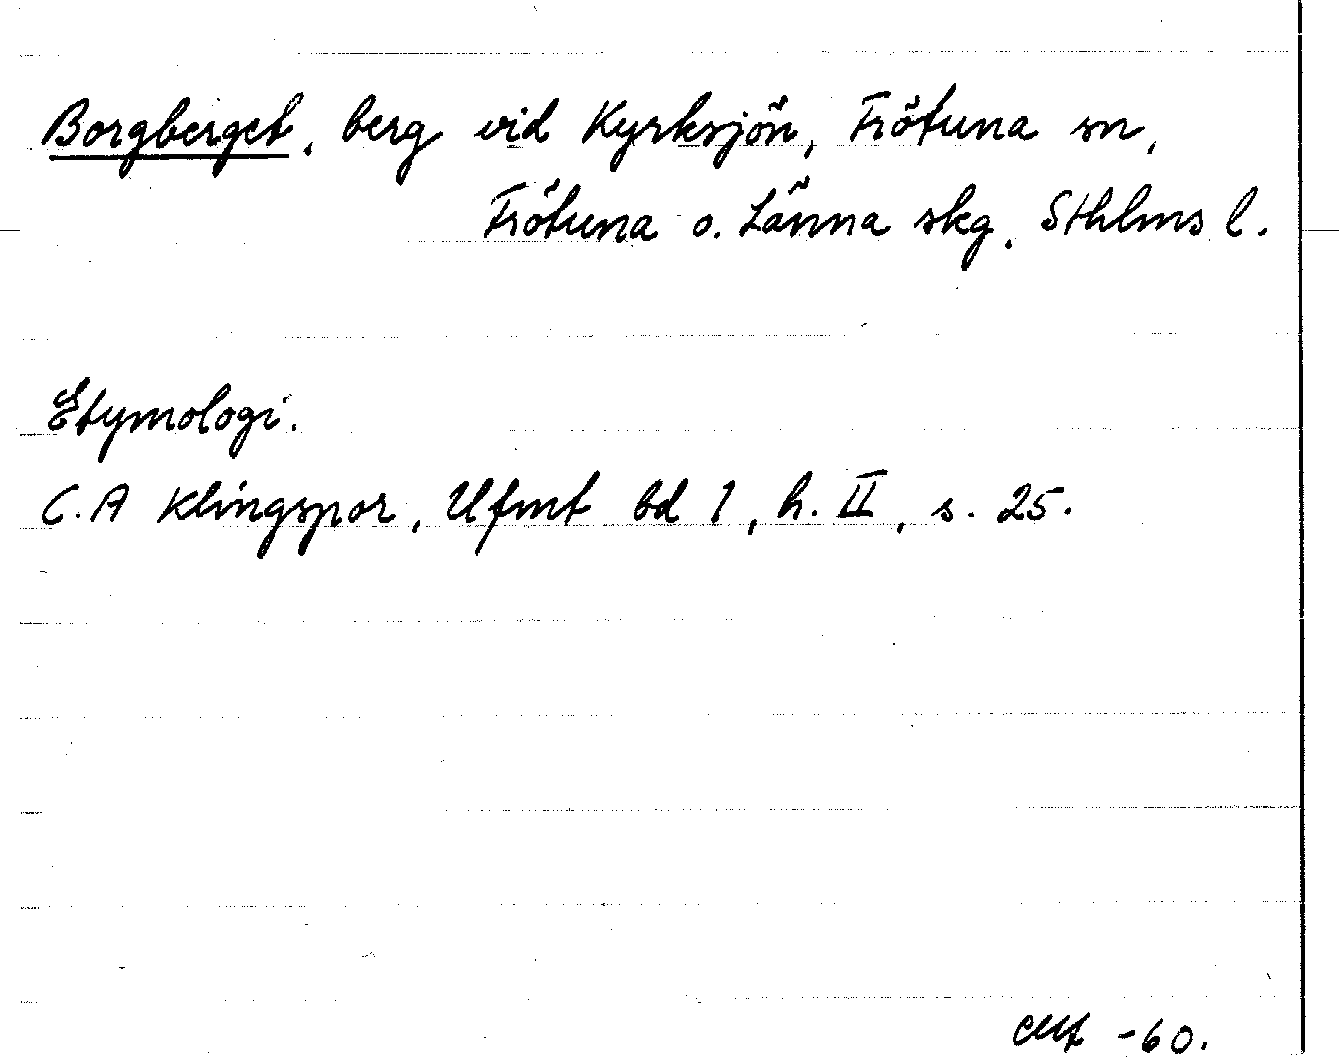 Borgberget, berg vid Kyrksjön, Frötuna sn,
Frötuna o. Länna skg. Sthlms l.
Etymologi.
C.A Klingspor, Ufmt bd 1, h. II, s. 25.
-60.